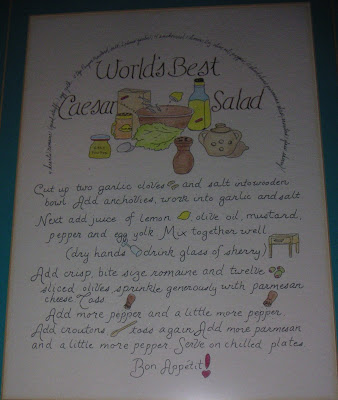 World's Best
Caesar Salad
Cut up two garlic cloves and salt into wooden
bowl Add anchovies, work into garlic and salt
Next add juice of lemon olive oil, mustard,
pepper and egg yolk Mix together well
(dry hands drink glass of sherry)
Add crisp, bite size romaine and twelve
sliced olives sprinkle generously with parmesan
cheese Toss
Add more pepper and a little more pepper
Add croutons toss again Add more parmesan
and a little more pepper Serve on chilled plates.
Bon Appétit!